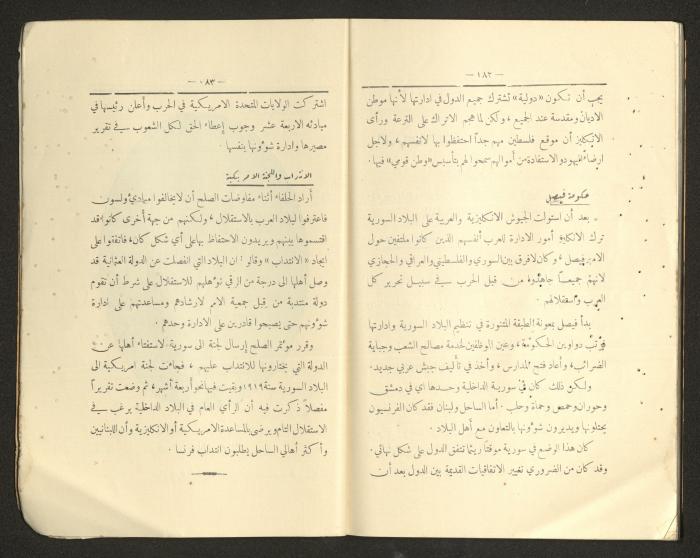 — ١٨٢ —
يجب أن تكون «دولية» تشترك جميع الدول في ادارتها لأنها موطن
الاديان ومقدسة عند الجميع ، ولكن لما هجم الاتراك على الترعة ورأى
الانكليز أن موقع فلسطين مهم جداً احتفظوا بها لانفسهم ، ولاجل
ارضاء اليهود والاستفادة من أموالهم سمحوا لهم بتأسيس «وطن قومي» فيها .
حكومة فيصل
بعد أن استولت الجيوش الانكليزية والعربية على البلاد السورية
ترك الانكليز أمور الادارة للعرب أنفسهم الذين كانوا ملتفين حول
الامير فيصل ، وكان لافرق بين السوري والفلسطيني والعراقي والحجازي
لانهم جميعاً جاهدوا من قبل الحرب في سبيل تحرير كل
العرب واستقلالهم .
بدأ فيصل بمعونة الطبقة المتنورة في تنظيم البلاد السورية وادارتها
فرتب دواوين الحكومة ، وعين الموظفين لخدمة مصالح الشعب وجباية
الضرائب ، وأعاد فتح المدارس ، وأخذ في تأليف جيش عربي جديد .
ولكن ذلك كان في سورية الداخلية وحدها اي في دمشق
وحوران وحمص وحماة وحلب . أما الساحل ولبنان فقد كان الفرنسيون
يحتلونها ويديرون شؤونها بالتعاون مع أهل البلاد .
كان هذا الوضع في سورية موقتاً ريثما تتفق الدول على شكل نهائي .
وقد كان من الضروري تغيير الاتفاقيات القديمة بين الدول بعد أن
— ٠٨٣ —
اشتركت الولايات المتحدة الاميركية في الحرب وأعلن رئيسها في
مبادئه الاربعة عشر وجوب إعطاء الحق لكل الشعوب في تقرير
مصيرها وادارة شؤونها بنفسها .
الانتداب واللجنة الاميركية
أراد الحلفاء أثناء مفاوضات الصلح أن لايخالفوا مبادئ ولسون
فاعترفوا لبلاد العرب بالاستقلال ، ولكنهم من جهة أخرى كانوا قد
اقتسموها بينهم ويريدون الاحتفاظ بها على أي شكل كان ، فاتفقوا على
ايجاد «الانتداب» وقالوا : ان البلاد التي انفصلت عن الدولة العثمانية قد
وصل أهلها الى درجة من الرقي تؤهلهم للاستقلال على شرط أن تقوم
دولة منتدبة من قبل جمعية الامم لارشادهم ومساعدتهم على ادارة
شؤونهم حتى يصبحوا قادرين على الادارة وحدهم .
وقرر موتمر الصلح إرسال لجنة الى سورية لاستفتاء أهلها عن
الدولة التي يختارونها للانتداب عليهم ، فجاءت لجنة اميركية الى
البلاد السورية سنة ١٩١٩ وبقيت فيها نحو أربعة أشهر ، ثم وضعت تقريراً
مفصلاً ذكرت فيه أن الرأي العام في البلاد الداخلية يرغب في
الاستقلال التام ويرضى بالمساعدة الاميركية أو الانكليزية وأن اللبنانيين
وأكثر أهالي الساحل يطلبون انتداب فرنسا .